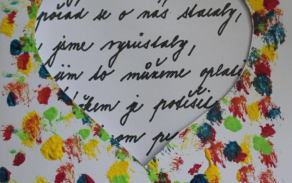 pořád se o nás staraly,
jsme vyrůstaly,
jim to můžeme oplat
kem je potěšit
om